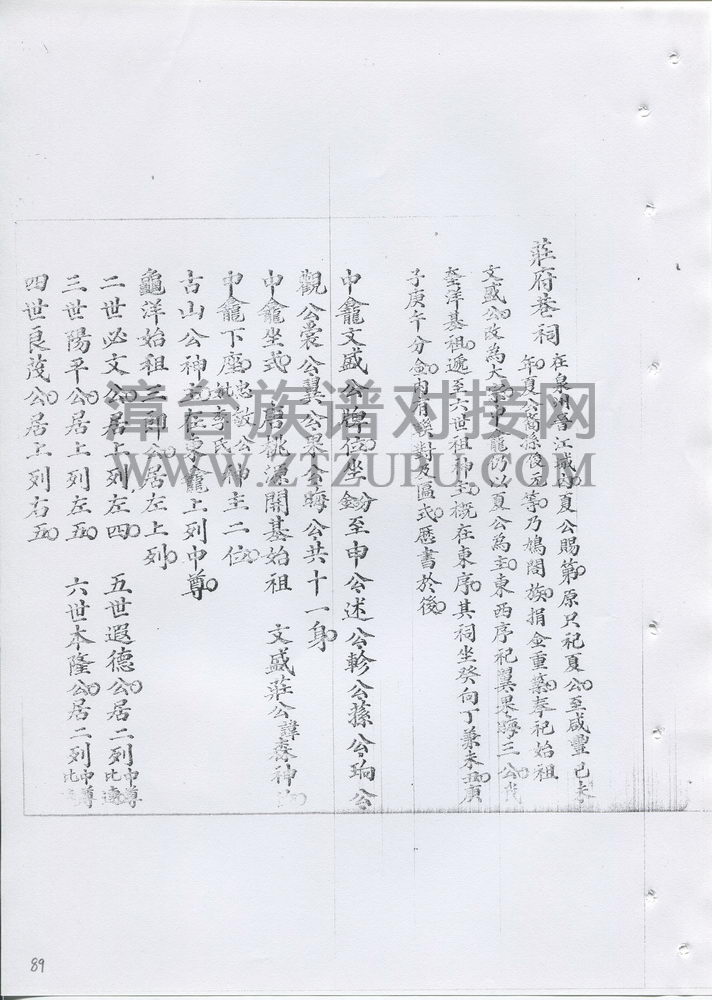 莊府巷祠 在泉州晋江城內夏公賜第原只祀夏公至咸豐己未
年夏公裔孫俊元等乃鳩閤族捐金重纂奉祀始祖
文盛公改為大宗中龕仍以夏公為主東西序祀翼果晦三公我
洋基祖遞至六世祖神主概在東序其祠坐癸向丁兼未丑庚
子庚午分金內有對及區式歷書於後
中龕文盛公牌位坐分金至申公述公軫公蓀公珦公
觀公裳公翼公果公晦公共十一身
中龕坐式 唐桃源開基始祖 文盛莊公諱森神
中龕下座忠敏公妣李氏神主二位
古山公神主在東龕上列中尊
龜洋始祖三神公居左上列
二世必文公居上列左四 五世遐德公居二列中尊比邊
三世陽平公居上列左五 六世本隆公居二列中尊比
四世良茂公居上列右五
漳台族谱对接网
WWW.ZTZUPU.COM
89